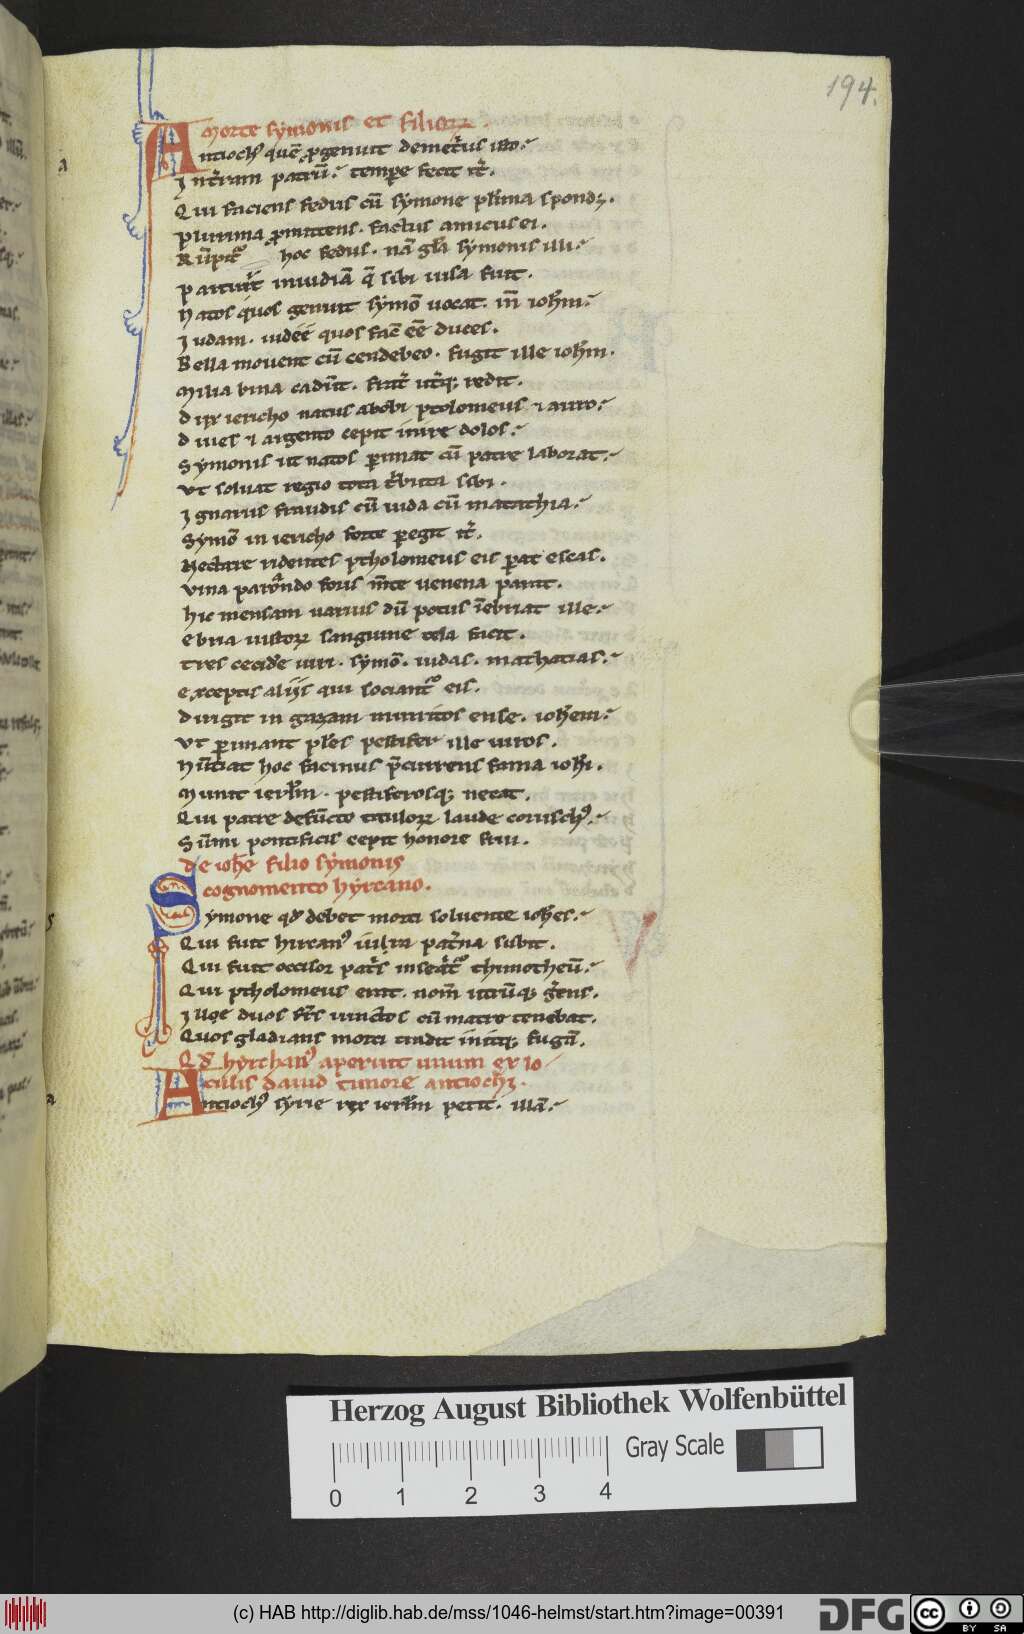 194.
morte symonis et filiorꝝ.
Antiochꝰ quē ꝓgenuit demetͥus isto
Intͣram patrū tempore fecit itͬ.
Qui faciens fedus cū symone plͥma spondꝫ.
plurima ꝓmittens. factus amicus ei.
Rūpitͬ hoc fedus. nā glͣ symonis illi
parturit inuidiā q̄ sibi uisa fuit.
Natos quos genuit symō uocat. m̄ ioħm
Iudam. iudeę quos facͤ eē duces.
Bella mouent cū cendebeo. fugit ille ioħm.
Milia bina cadūt. fratͬ utͬqꝫ redit.
Dux iericho natus abobi ptolomeus ⁊ auro
Diues ⁊ argento cepit inire dolos
Symonis ut natos ꝑimat cū patre laborat
Vt soluat regio tota tͥbuta sibi.
Ignarus fraudis cū iuda cū matathia
Symō in iericho forte ꝑegit itͬ.
Nectare ridentes ptholomeus eis ꝑat escas.
Vina parando foris m̄te uenena parat.
hic mensam uarius dū potus īebriat ille
Ebria uistorꝝ sanguine tela facit.
Tres cecidͤe uiri. symō. iudas. mathatias.
Exceptis alijs qui sociantͬ eis.
Dirigit in gazam munitos ense. ioħem
Vt ꝑimant plͬes pestifer ille uiros.
Nūtiat hoc facinus p̄currens fama ioħi.
Munit ierlͬm. pestiferosqꝫ necat.
Qui patre defūcto titulorꝝ laude coruschꝰ
Sūmi pontificis cepit honore frui.
de ioħe filio symonis
cognomento hyrcano.
Symone qđ debet morti soluente ioħes
Qui fuit hircanꝰ iussa patͬna subit.
Qui fuit occisor patͥs inseqͥtͬ thimotheū
Qui ptholomeus erat. nom̄ utrūqꝫ gͤens.
Ille duos frͬes uinctos cū matre tenebat.
Quos gladians morti tradit initqꝫ fugā.
Qđ hyrchanꝰ aperuit unum ex lo
culis dauid timore antiochi.
Antiochꝰ syrie rex ierlͬm petit. illā
a
s
a
Herzog August Bibliothek Wolfenbüttel
Gray Scale
0 1 2 3 4
(c) HAB http://diglib.hab.de/mss/1046-helmst/start.htm?image=00391
DFG
cc BY SA